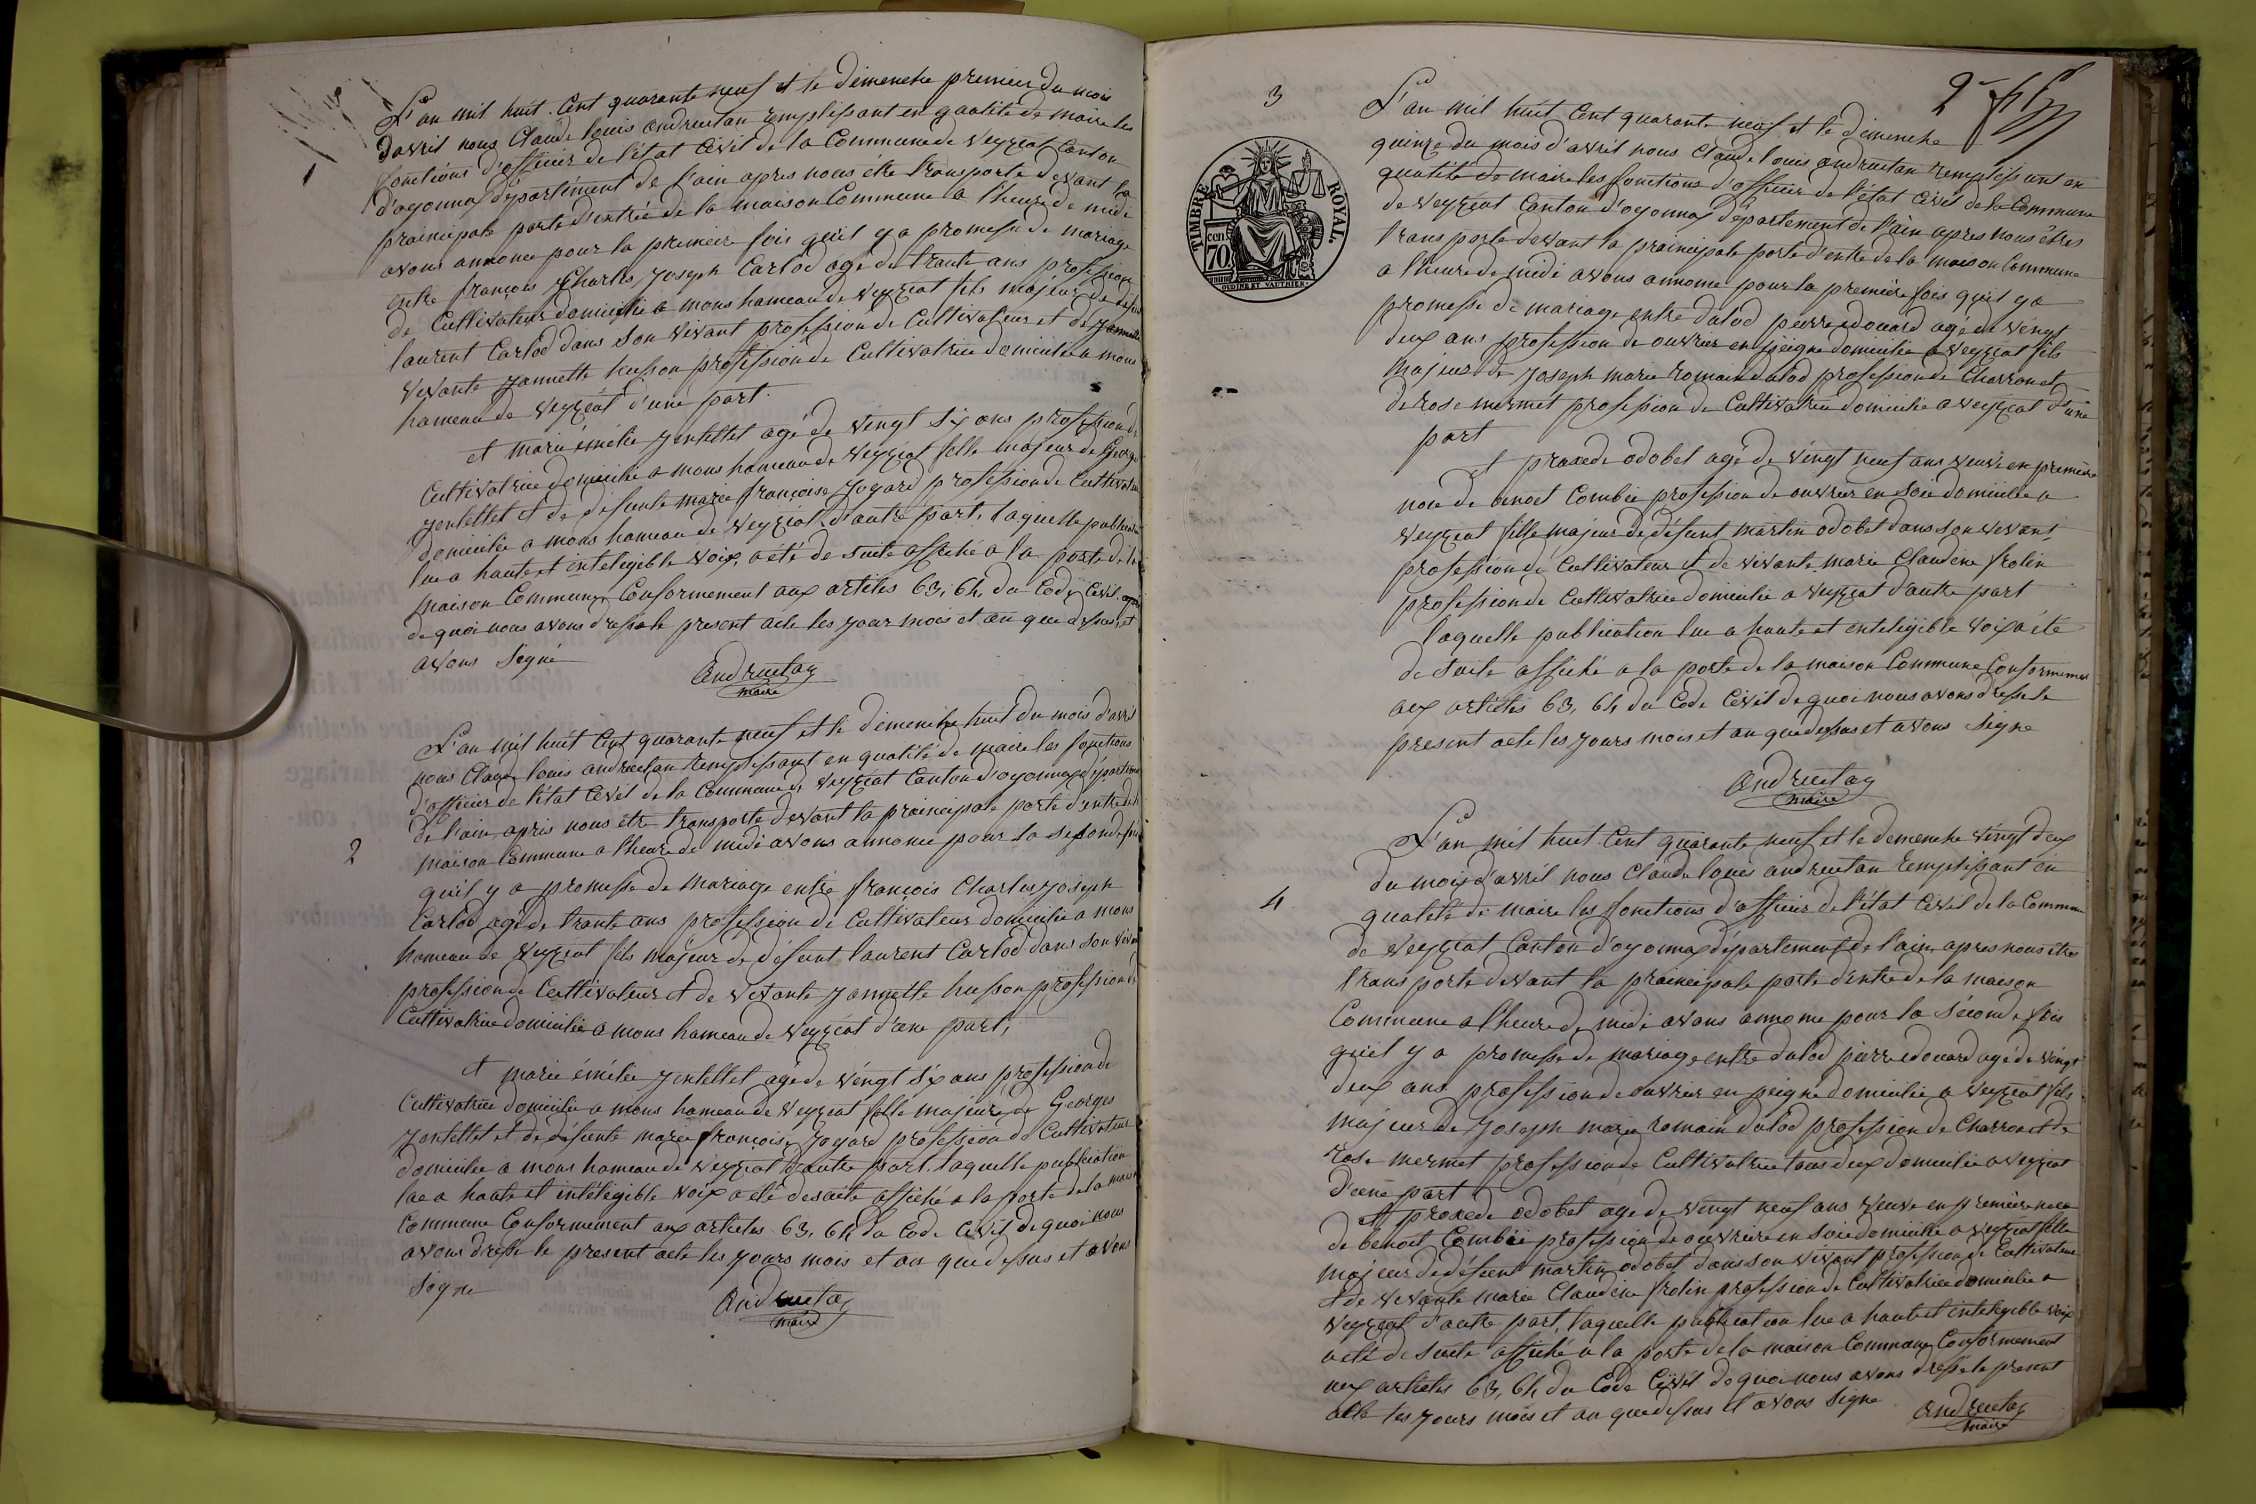 1
L'an mil huit cent quarante neuf et le dimenche premier du mois
davril nous Claude louis andruetan remplissant en qualité de maire les
fonctions d'officier de l'état civil de la Commune de veyziat Canton
d'oyonnax département de l'ain apres nous être transporte devant la
prainicipale porte d'entrée de la maison Commune a l'heure de midi
avons annonce pour la premiere fois quil y a promesse de mariage
entre françois Charles Joseph Carlod agé de trante ans profession
de Cultivateur domicilié a mons hameau de veyziat fils majeur de défunt
laurent Carlod dans son vivant profession de Cultivateur et de
vivante Jannette husson profession de Cultivatrice domiciliée a mons
hameau de veyziat d'une part.
et marie émélie Jentellet agé de vingt six ans profession de
Cultivatrice domiciliée a mons hameau de veyziat fille majeur de George
Jentellet et de défunte marie françoise Joyard profession de Cultivateur
domicilié a mons hameau de veyziat d'autre part, laquelle publication
lue a haute et inteligible voix, a été de suite affiché a la porte de la
maison Commune Conformement aux articles 63, 64, du Code Civil
de quoi nous avons dressé le present acte les jour mois et an que dessus et
avons signé
andruetan
maire
2
L'an mil huit cent quarante neuf et le dimenche huit du mois d'avril
nous Claude louis andruetan remplissant en qualité de maire les fonctions
d'officier de l'état Civil de la Commune de veyziat Canton d'oyonnax département
de l'ain apris nous être transporte devant la prainicipale porte d'entrée de la
maison Commune a l'heure de midi avons annonce pour la seconde fois
quil y a promesse de mariage entre françois Charles Joseph
Carlod agé de trante ans profession de Cultivateur domicilié a mons
hameau de veyziat fils majeur de défunt laurent Carlod dans son vivant
profession de Cultivateur et de vivante Jannette husson profession de
Cultivatrice domiciliée a mons hameau de veyziat d'une part,
et marie émélie Jentellet agé de vingt six ans profession de
Cultivatrice domiciliée a mons hameau de veyziat fille majeure de Georges
Jentellet et de défunte marie françoise Joyard profession de Cultivateur
domicilié a mons hameau de veyziat d'autre part, laquelle publication
lue a haute et intéligible voix a été de suite affiché a la porte de la maison
Commune Conformement aux articles 63, 64 du Code Civil de quoi nous
avons dressé le present acte les jours mois et an que dessus et avons
signé
andruetan
maire
2
3
TIMBRE ROYAL.
cen. 70
L'an mil huit Cent quarante neuf et le dimenche
quinze du mois d'avril nous Claude louis andruetan remplissant en
qualité de maire les fonctions d'officier de l'état Civil de la Commune
de veyziat Canton d'oyonnax département de l'ain apres nous êtres
transporte devant la prainicipale porte d'entre de la maison Commune
a l'heure de midi avons annonce pour la premiére fois quil y a
promesse de mariage entre dalod pierre edouard agé de vingt
deux ans profession de ouvrier en peigne domicilié a veyziat fils
majeur de Joseph marie romain dalod profession de Charron et
de rose mermet profession de Cultivatrice domicilié a veyziat d'une
part
et praxede odobet agé de vingt neuf ans veuve en première
noce de benoet Combée profession de ouvriere en soie domiciliée a
veyziat fille majeur de défunt martin odobet dans son vivant
profession de Cultivateur et de vivante marie Claudene frolin
profession de Cultivatrice domiciliée a veyziat d'autre part
laquelle publication lue a haute et inteligible voix a été
de suite affiché a la porte de la maison Commune Conformement
aux articles 63, 64 du Code Civil de quoi nous avons dressé le
present acte les jours mois et an que dessus et avons signe
andruetan
maire
4
L'an mil huit Cent quarante neuf et le dimenche vingt deux
du mois d'avril nous Claude louis andruetan remplissant en
qualité de maire les fonctions d'officier de l'état Civil de la Commune
de veyziat Canton d'oyonnax département de l'ain apres nous etres
transporte devant la prainicipale porte d'entre de la maison
Commune a l'heure de midi avons annonce pour la seconde fois
quil y a promesse de mariage entre dalod pierre edouard agé de vingt
deux ans profession de ouvrier en peigne domicilié a veyziat fils
majeur de Joseph marie romain dalod profession de Charron et de
rose mermet profession de Cultivatrice tous deux domicilié a veyziat
d'une part
et praxede odobet age de vingt neuf ans veuve en première noce
de benoet Combée profession de ouvriere en soie domiciliée a veyziat fille
majeur de défunt martin odobet dans son vivant profession de Cultivateur
et de vivante marie Claudene frolin profession de Cultivatrice domiciliée a
veyziat d'autre part, laquelle publication lue a haute et inteligible voix
a été de suite affiché a la porte de la maison Commune Conformement
aux articles 63, 64 du Code Civil de quoi nous avons dressé le present
acte les jours mois et an que dessus et avons signe
andruetan
maire